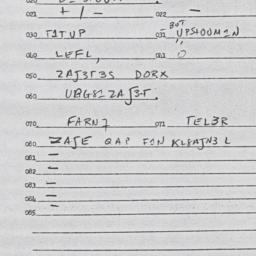 021 + / - 022 -
030 TITUP 031 BUT UPSIOOMEN
040 LEFL, 041 O
050 ZAJ3T3S DORX
060 UBG81 ZAJ3T.
070 FARN7 071 TEL3R
080 ZAJE QAP FON KL8AJN3 L
081 -
082 -
083 -
084 -
085